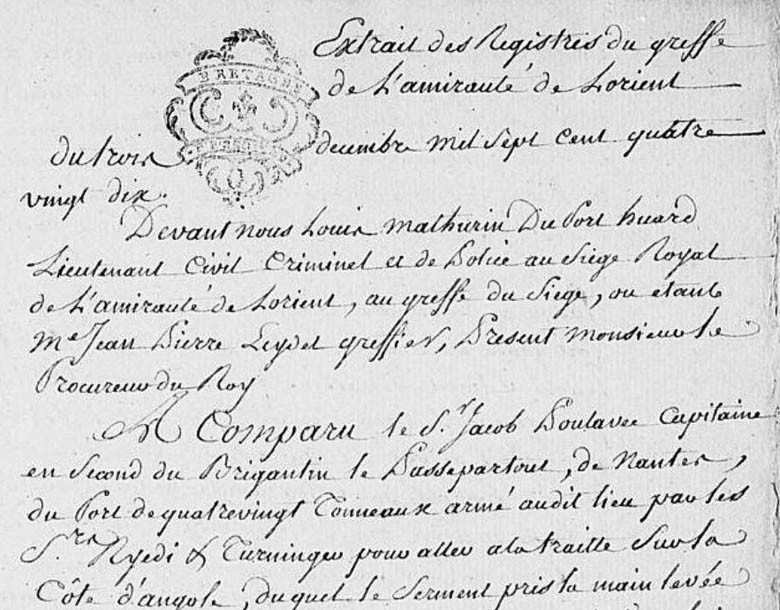 Extrait des Registres du greffe
BRETAGNE
de L'amirauté de Lorient
du trois decembre mil Sept Cent quatre
vingt dix.
Devant nous Louis Mathurin Du Port huard
Lieutenant Civil Criminel et de Police au Siége Royal
de L'amirauté de Lorient, au greffe du Siege, ou etant
Me Jean Pierre Leydet greffier, Present Monsieur le
Procureur du Roy
A Comparu le Sr. Jacob Capitaine
en Second du Brigantin le Passepartout, de Nantes,
du Port de quatrevingt Tonneaux armé audit lieu par les
S.rs & Turninger pour aller a la traitte Sur la
Côte d'angole, duquel le Serment pris la main levée